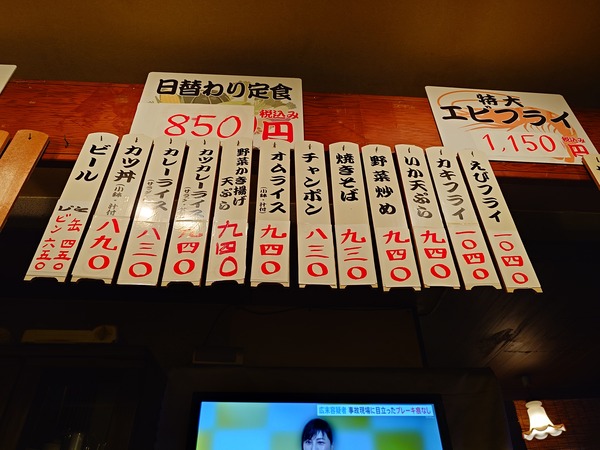 日替わり定食
850円
税込み
特大
エビフライ
1,150円
税込み
えびフライ
一〇四〇
カキフライ
一〇四〇
いか天ぷら
九四〇
野菜炒め
九四〇
焼きそば
九三〇
チャンポン
八三〇
オムライス
(小鉢・汁付)
九四〇
野菜かき揚げ
天ぷら
九四〇
カツカレーライス
九四〇
カレーライス
八三〇
カツ丼
(小鉢・汁付)
八九〇
ビール
缶 四五〇
ビン 六五〇
広末容疑者 事故現場に目立ったブレーキ痕なし